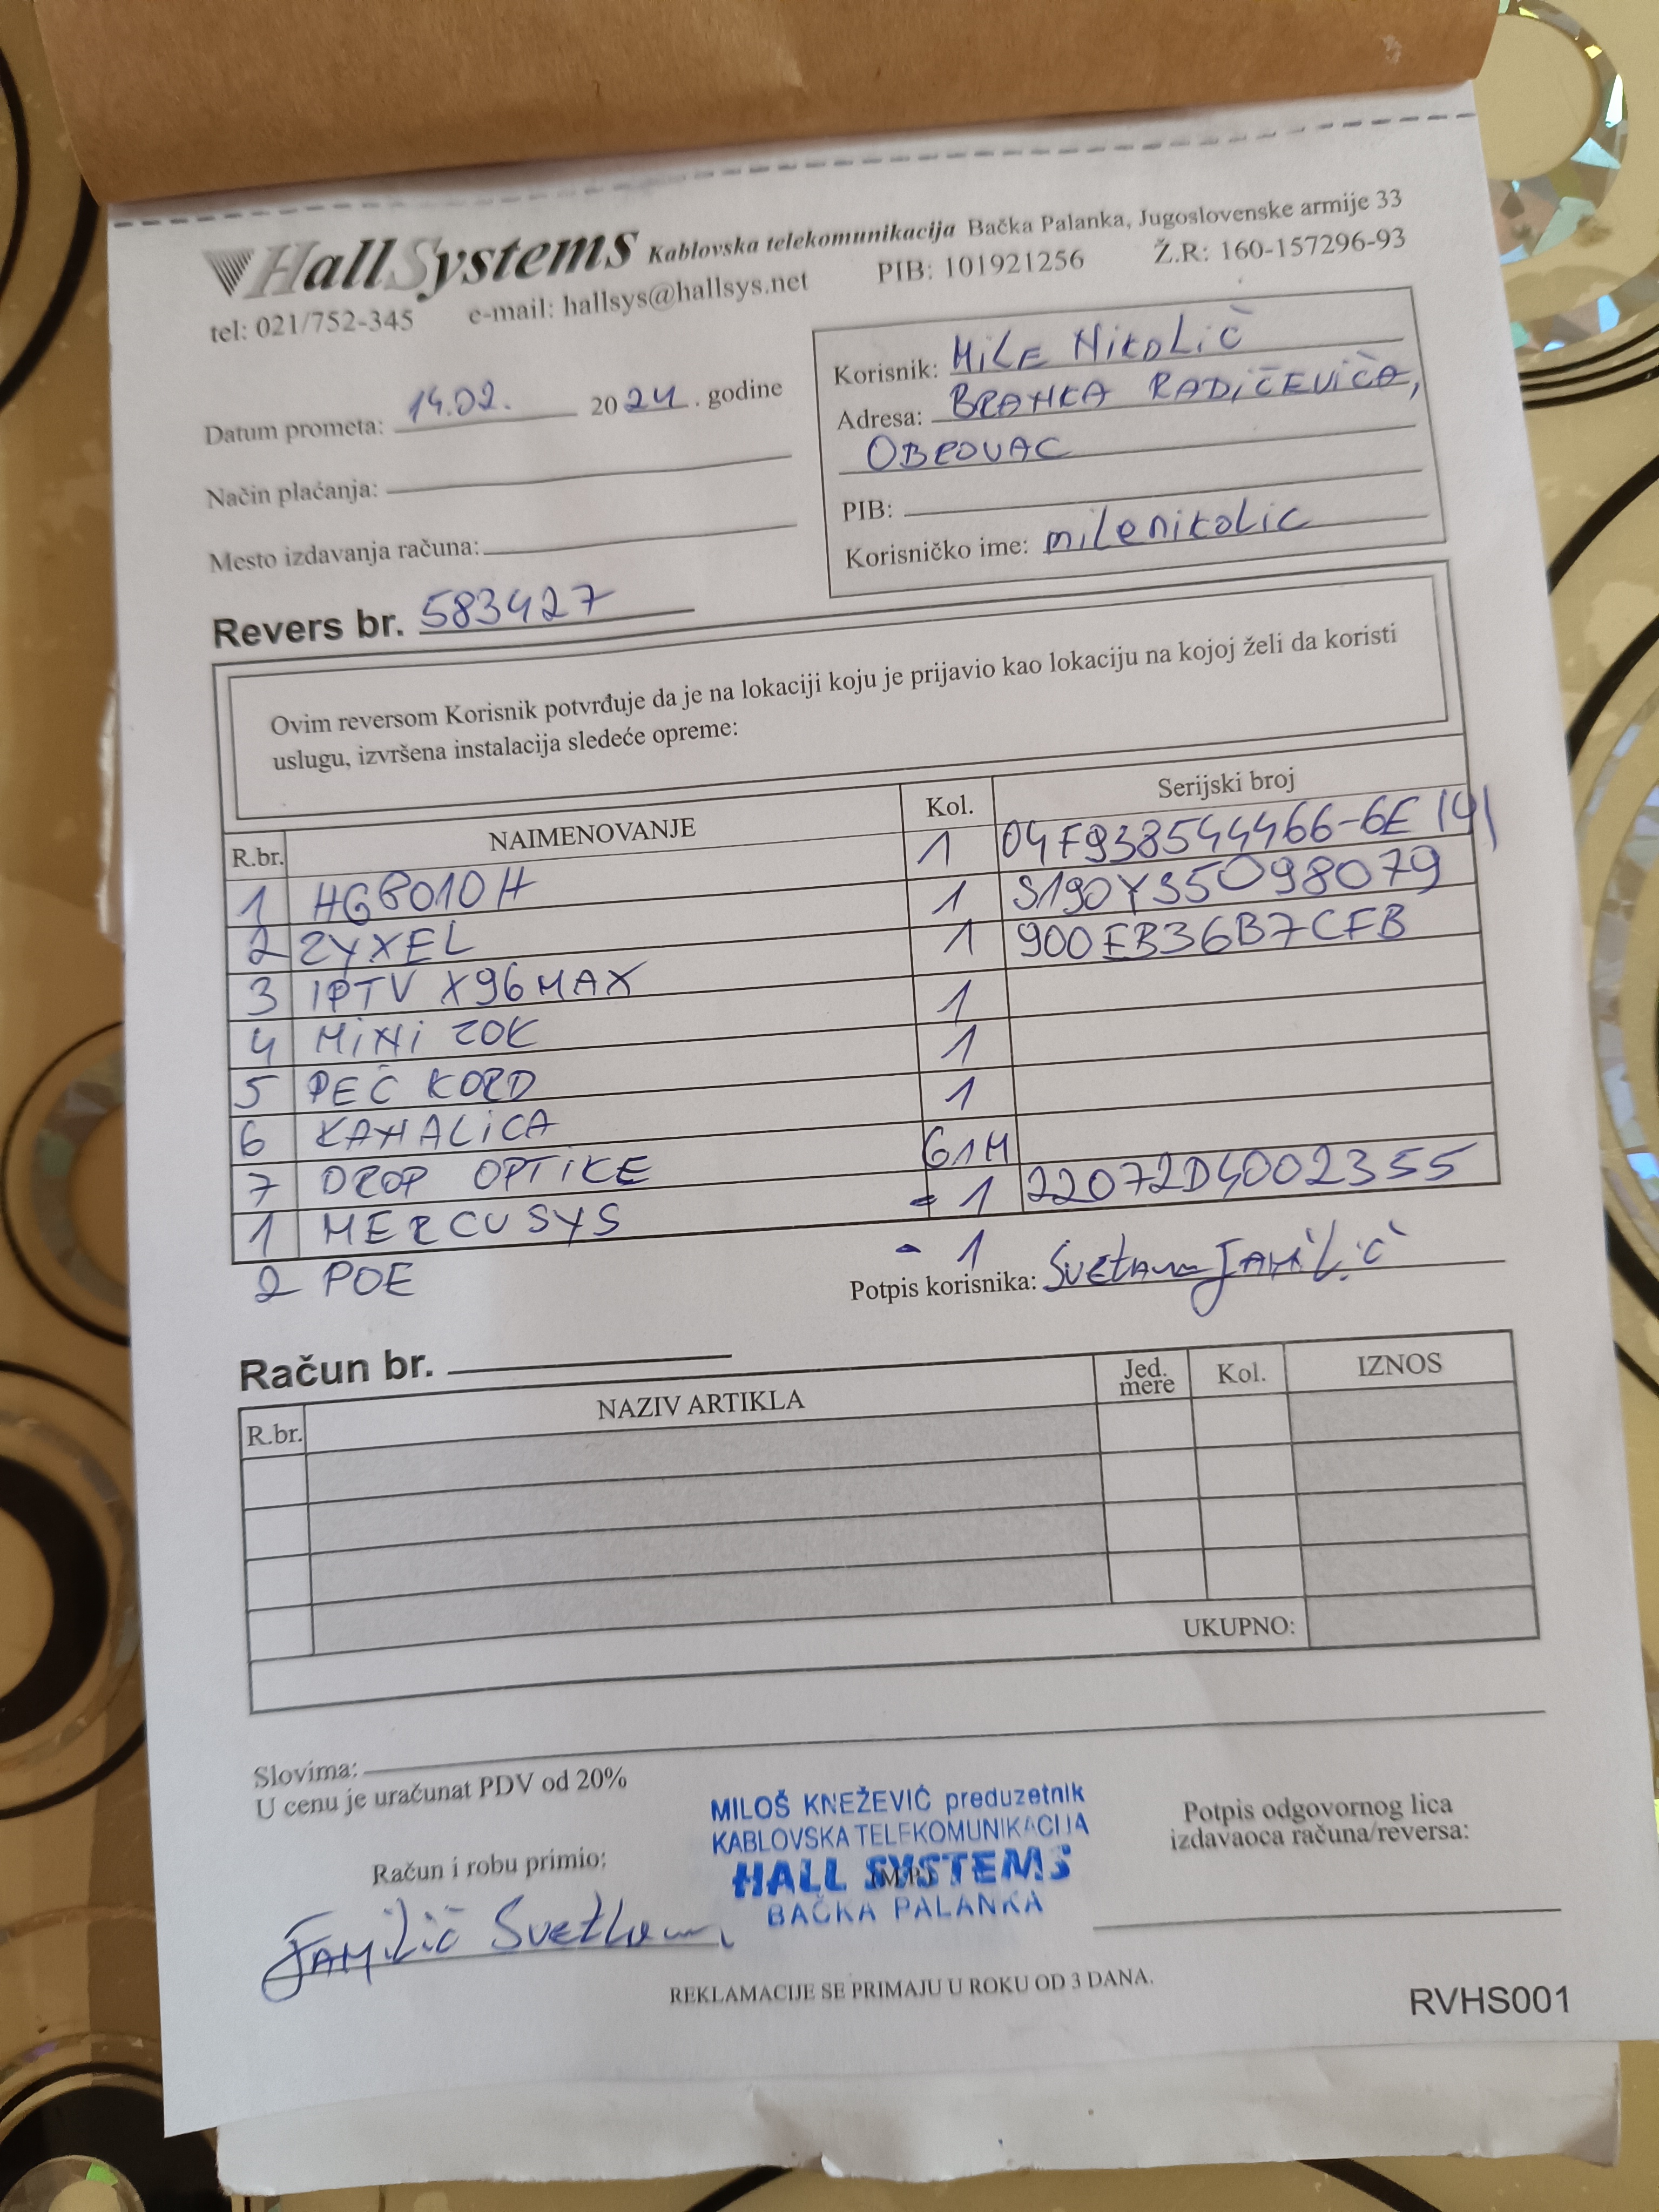 HallSystems Kablovska telekomunikacija Bačka Palanka, Jugoslovenske armije 33
tel: 021/752-345 e-mail: hallsys@hallsys.net PIB: 101921256 Ž.R: 160-157296-93
Datum prometa: 14.02. 2024. godine
Način plaćanja:
Mesto izdavanja računa:
Korisnik: MiLE NikoLić
Adresa: BRANKA RADiČEVićA,
OBROVAC
PIB:
Korisničko ime: milenikolic
Revers br. 583427
Ovim reversom Korisnik potvrđuje da je na lokaciji koju je prijavio kao lokaciju na kojoj želi da koristi
uslugu, izvršena instalacija sledeće opreme:
R.br. NAIMENOVANJE Kol. Serijski broj
1 HG8010H 1 04F938544466-6E 141
2 ZYXEL 1 S190Y35098079
3 IPTV X96MAX 1 900EB36B7CFB
4 MiNi ZOK 1
5 PEČ KORD 1
6 KANALiCA 1
7 DROP OPTiKE 61M
1 MERCUSYS - 1 22072D4002355
2 POE - 1
Potpis korisnika:
Račun br.
R.br. NAZIV ARTIKLA Jed. mere Kol. IZNOS
UKUPNO:
Slovima:
U cenu je uračunat PDV od 20%
Račun i robu primio:
MILOŠ KNEŽEVIĆ preduzetnik
KABLOVSKA TELEKOMUNIKACIJA
HALL SYSTEMS
BAČKA PALANKA
Potpis odgovornog lica
izdavaoca računa/reversa:
REKLAMACIJE SE PRIMAJU U ROKU OD 3 DANA.
RVHS001